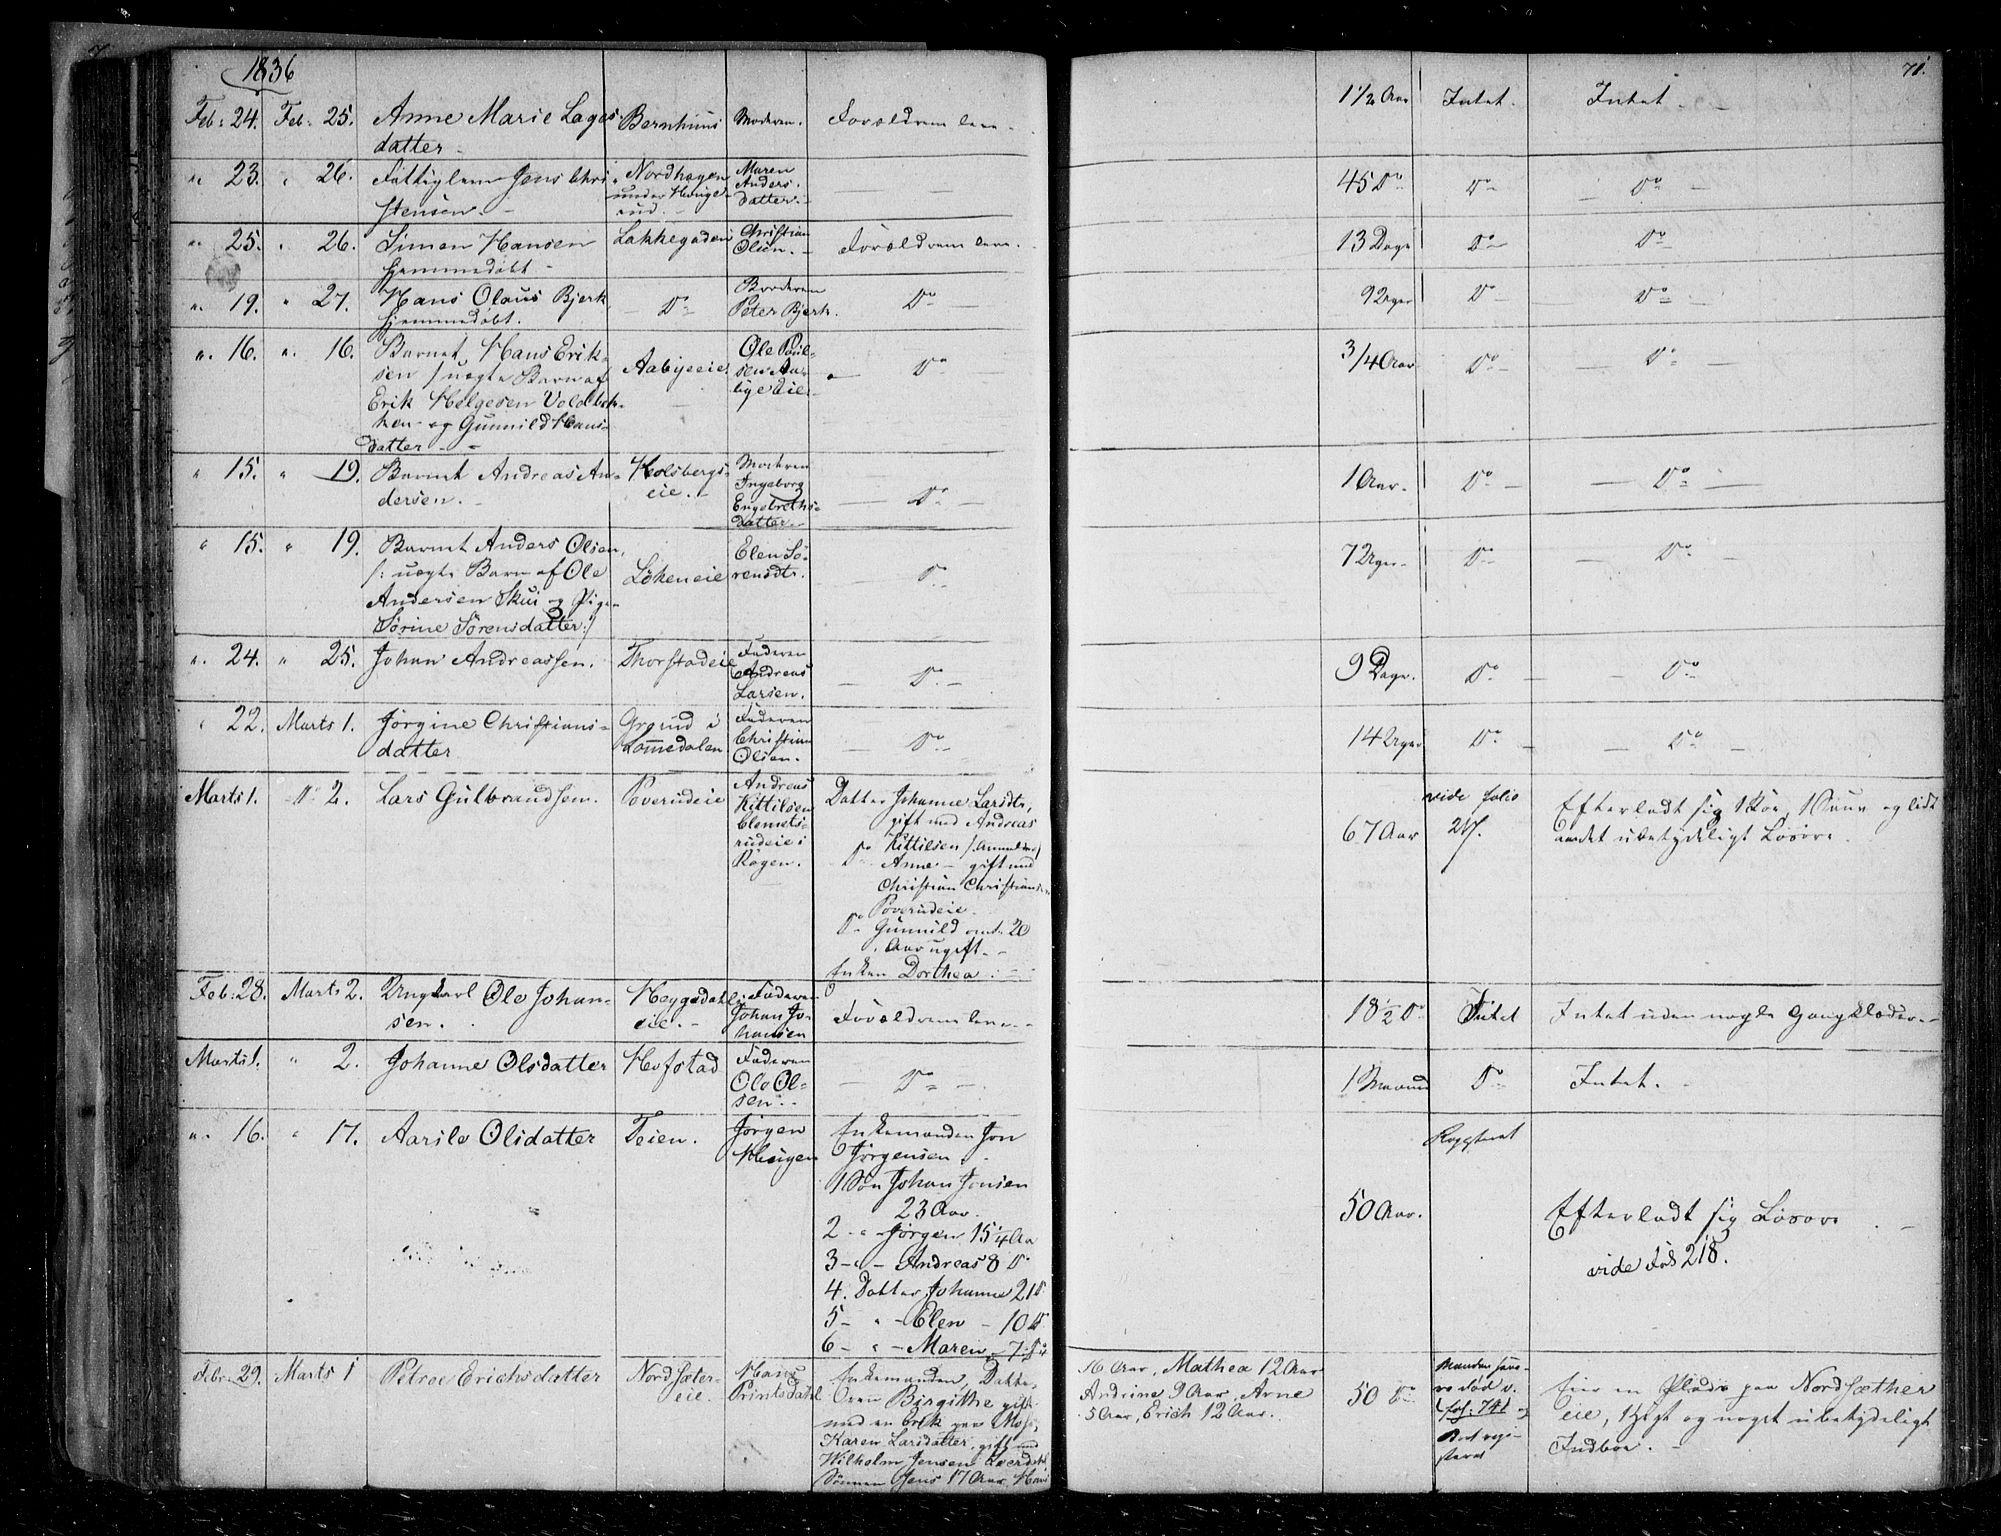 1836
71.
Feb: 24. Feb: 25. Anne Marie Lagesdatter Bernhuus Moderen. Forældrene leve. 1 1/2 Aar Intet. Intet.
" 23. " 26. Fattiglem Jens Christensen. Nordhagen under Hougerud. Maren Andersdatter. — — 45 Do Do Do
" 25. " 26. Simen Hansen hjemmedøbt Lakkegaden Christian Olsen. Forældrene leve. 13 Dage Do Do
" 19. " 27. Hans Olaus Bjerk hjemmedøbt. Do Broderen Peter Bjerk. Do 9 Uger Do Do
" 16. " 16. Barnet Hans Eriksen /: uægte Barn af Erik Helgesen Voldbakken og Gunnild Hansdatter Aabyeeie Ole Poulsen Do 3/4 Aar Do Do
" 15. " 19. Barnet Andreas Andersen. Holsbergseie. Moderen Ingeborg Engebrethsdatter Do 1 Aar. Do Do
" 15. " 19. Barnet Anders Olsen, /: uægte Barn af Ole Andersen Skui og Pige Sørine Sørensdatter :/ Løkeneie Elen Sørensdtr. Do 7 Uger Do Do
" 24. " 25. Johan Andreassen. Thorstadeie Faderen Andreas Larsen. Do 9 Dage. Do Do
" 22. Marts 1. Jørgine Christiansdatter Grorud i Lommedalen Faderen Christian Olsen. Do 14 Uger Do Do
Marts 1. Do 2. Lars Gulbrandsen. Poverudeie Andreas Kittilsen Clemetsrudeie i Røgen.
Datter Johanne Larsdtr,
gift med Andreas
Kittilsen /: Anmelder :/
Do Anne — gift med
Christian Christiansen
Poverudeie.
Do Gunnild omtr 20
Aar ugift.
Enken Dorthea
67 Aar vide folio 217. Efterladt sig 1 Koe, 1 Suun og lidt
andet ubetydeligt Løsøre.
Feb: 28. Marts 2. Ungkarl Ole Johansen. Heggedahlseie. Faderen Johan Johansen Forældrene leve 18 1/2 Do Intet Intet uden nogle Gangklæder.
Marts 1. " 2. Johanne Olsdatter Hofstad Faderen Ole Olsen. Do 1 Maaned Do Intet.
" 16. " 17. Aasile Olsdatter Teien. Jørgen
Enkemanden Jon
Jørgensen
1 Søn Johan Jonsen
23 Aar.
2 - " - Jørgen 15 1/4 Aar
3 - " - Andreas 8 Do
4. Datter Johanne 21 Do
5 - " - Elen - 10 Do
6 - " - Maren - 7 Do
50 Aar. Registeret Efterladt sig Løsøre
vide Fol 218.
Febr: 29. Marts 1 Petrae Erichsdatter Nordsætereie. Hans Printsdahl
Enkemanden, Datteren Birgithe gift
med en Erik paa Moss,
Karen Larsdatter, gift med
Wilhelm Jensen
Sønnen Jens 17 Aar, Hans
16 Aar, Mathea 12 Aar
Andrine 9 Aar, Arne
5 Aar, Erich 12 Aar.
50 Do Manden Død v. fol: 741 og Boet registeret
Eier en Plads paa Nordsæther
eie, 1 Hest og noget ubetydeligt
Indboe.